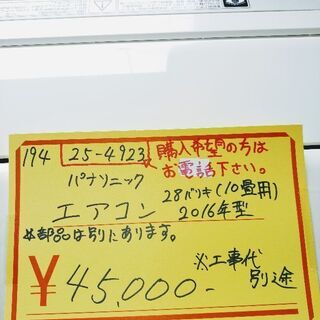 194 25-4923 購入希望の方は
お電話下さい。
パナソニック
28バリキ(10畳用)
エアコン 2016年型
※部品は別にあります。
¥45,000-
※工事代
別途